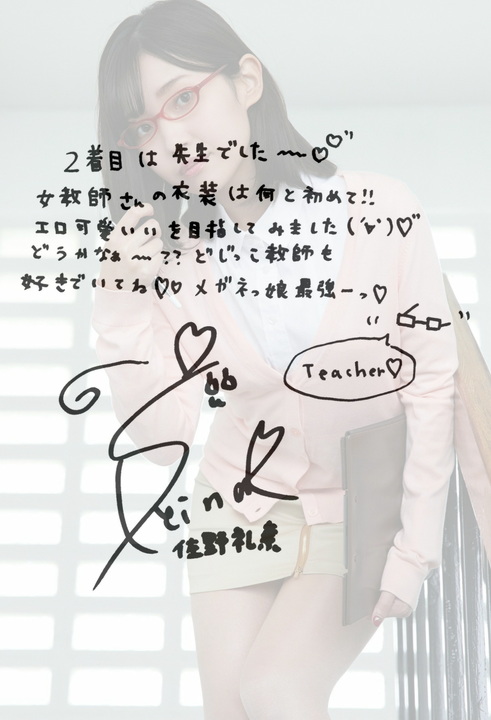 2着目は先生でした〜♡♡"
女教師さんの衣装は何と初めて!!
エロ可愛いいを目指してみました(´∀`)♡"
どうかなぁ〜?? どじっこ教師も
好きでいてね♡♡ メガネっ娘最強ーっ♡
Teacher♡
Reina
佐野礼奈